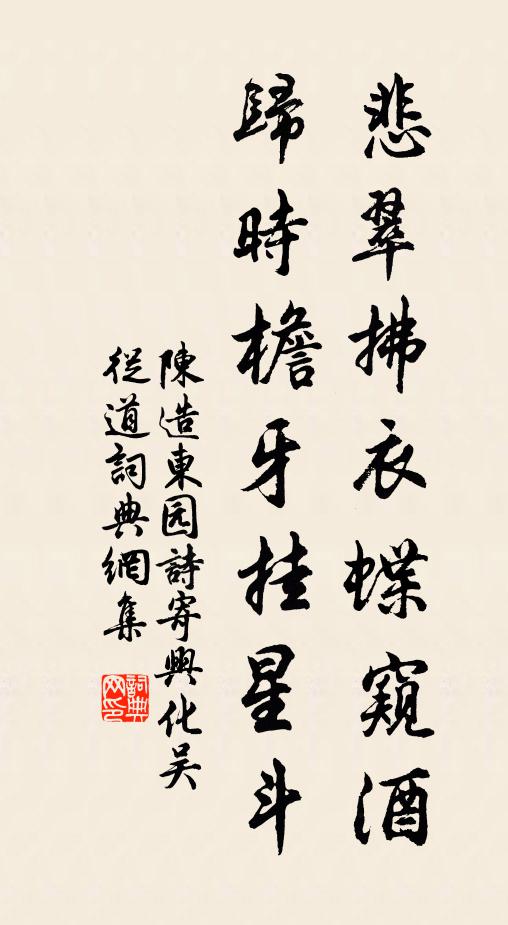 悲翠拂衣蝶窺酒
歸時檐牙挂星斗
陳造東园詩寄興化吴
從道詞典網集
詞典网印